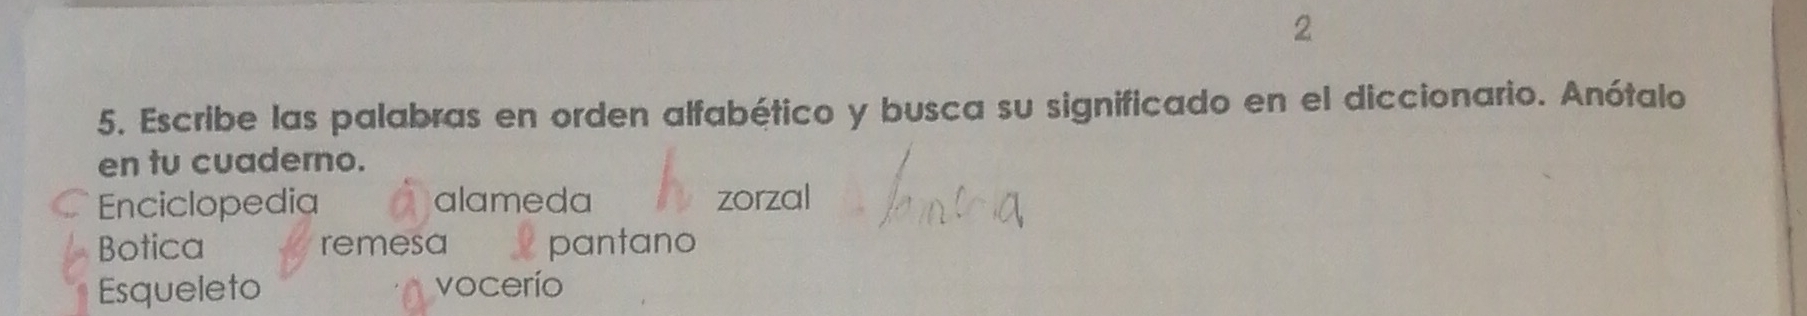 2
5. Escribe las palabras en orden alfabético y busca su significado en el diccionario. Anótalo
en tu cuaderno.
c Enciclopedia a alameda h zorzal
b Botica f remesa e pantano
d Esqueleto g vocerío